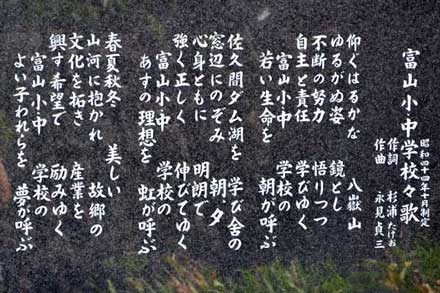 富山小中学校々歌
昭和四十四年十月制定
作詞 杉浦たけお
作曲 永見貞三
仰ぐはるかな 八嶽山
ゆるがぬ姿 鏡とし
不断の努力 悟りつつ
自主と責任 学びゆく
富山小中 学校の
若い生命を 朝が呼ぶ
佐久間ダム湖を 学び舎の
窓辺にのぞみ 朝夕
心身ともに 明朗で
強く正しく 伸びてゆく
富山小中 学校の
あすの理想を 虹が呼ぶ
春夏秋冬 美しい
山河に抱かれ 故郷の
文化を拓き 産業を
興す希望で 励みゆく
富山小中 学校の
よい子われらを 夢が呼ぶ